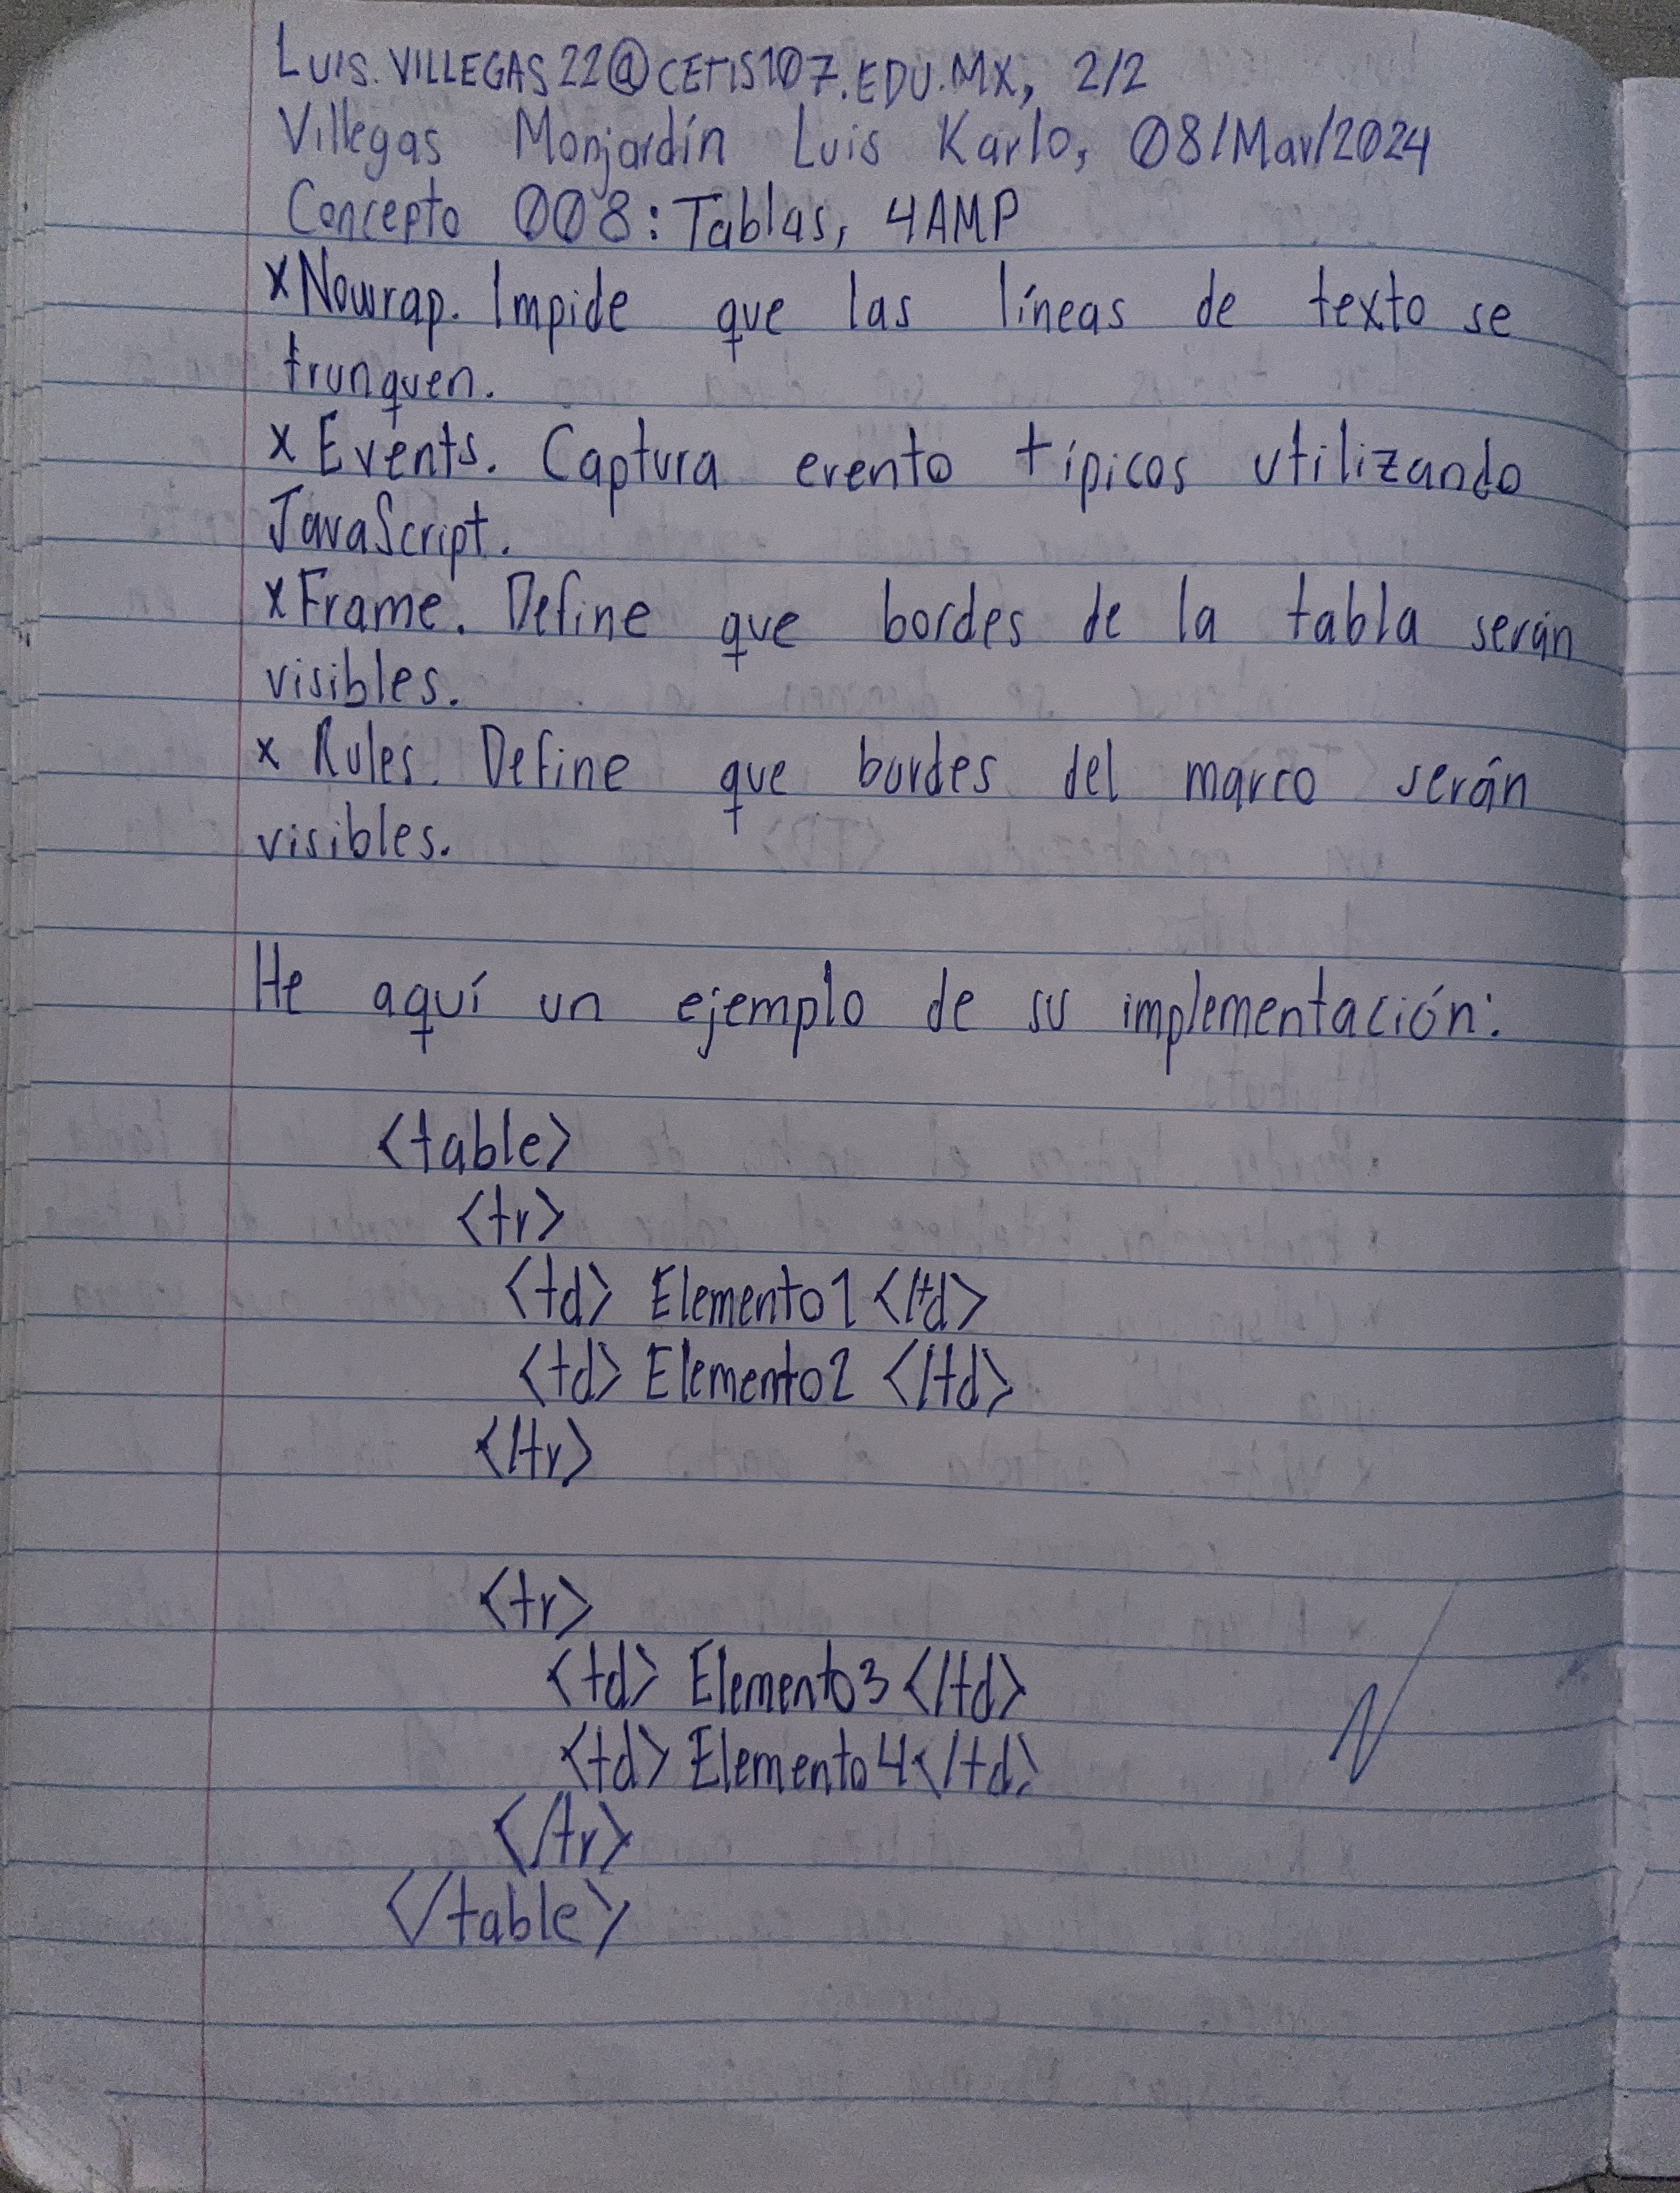 LUIS.VILLEGAS22@CETIS107.EDU.MX, 2/2
Villegas Monjardín Luis Karlo, 08/Mar/2024
Concepto 008: Tablas, 4AMP
x Nowrap. Impide que las líneas de texto se
trunquen.
x Events. Captura evento típicos utilizando
JavaScript.
x Frame. Define que bordes de la tabla serán
visibles.
x Rules. Define que bordes del marco serán
visibles.
He aquí un ejemplo de su implementación:
<table>
<tr>
<td> Elemento1 </td>
<td> Elemento2 </td>
</tr>
<tr>
<td> Elemento3 </td>
<td> Elemento4 </td>
</tr>
</table>